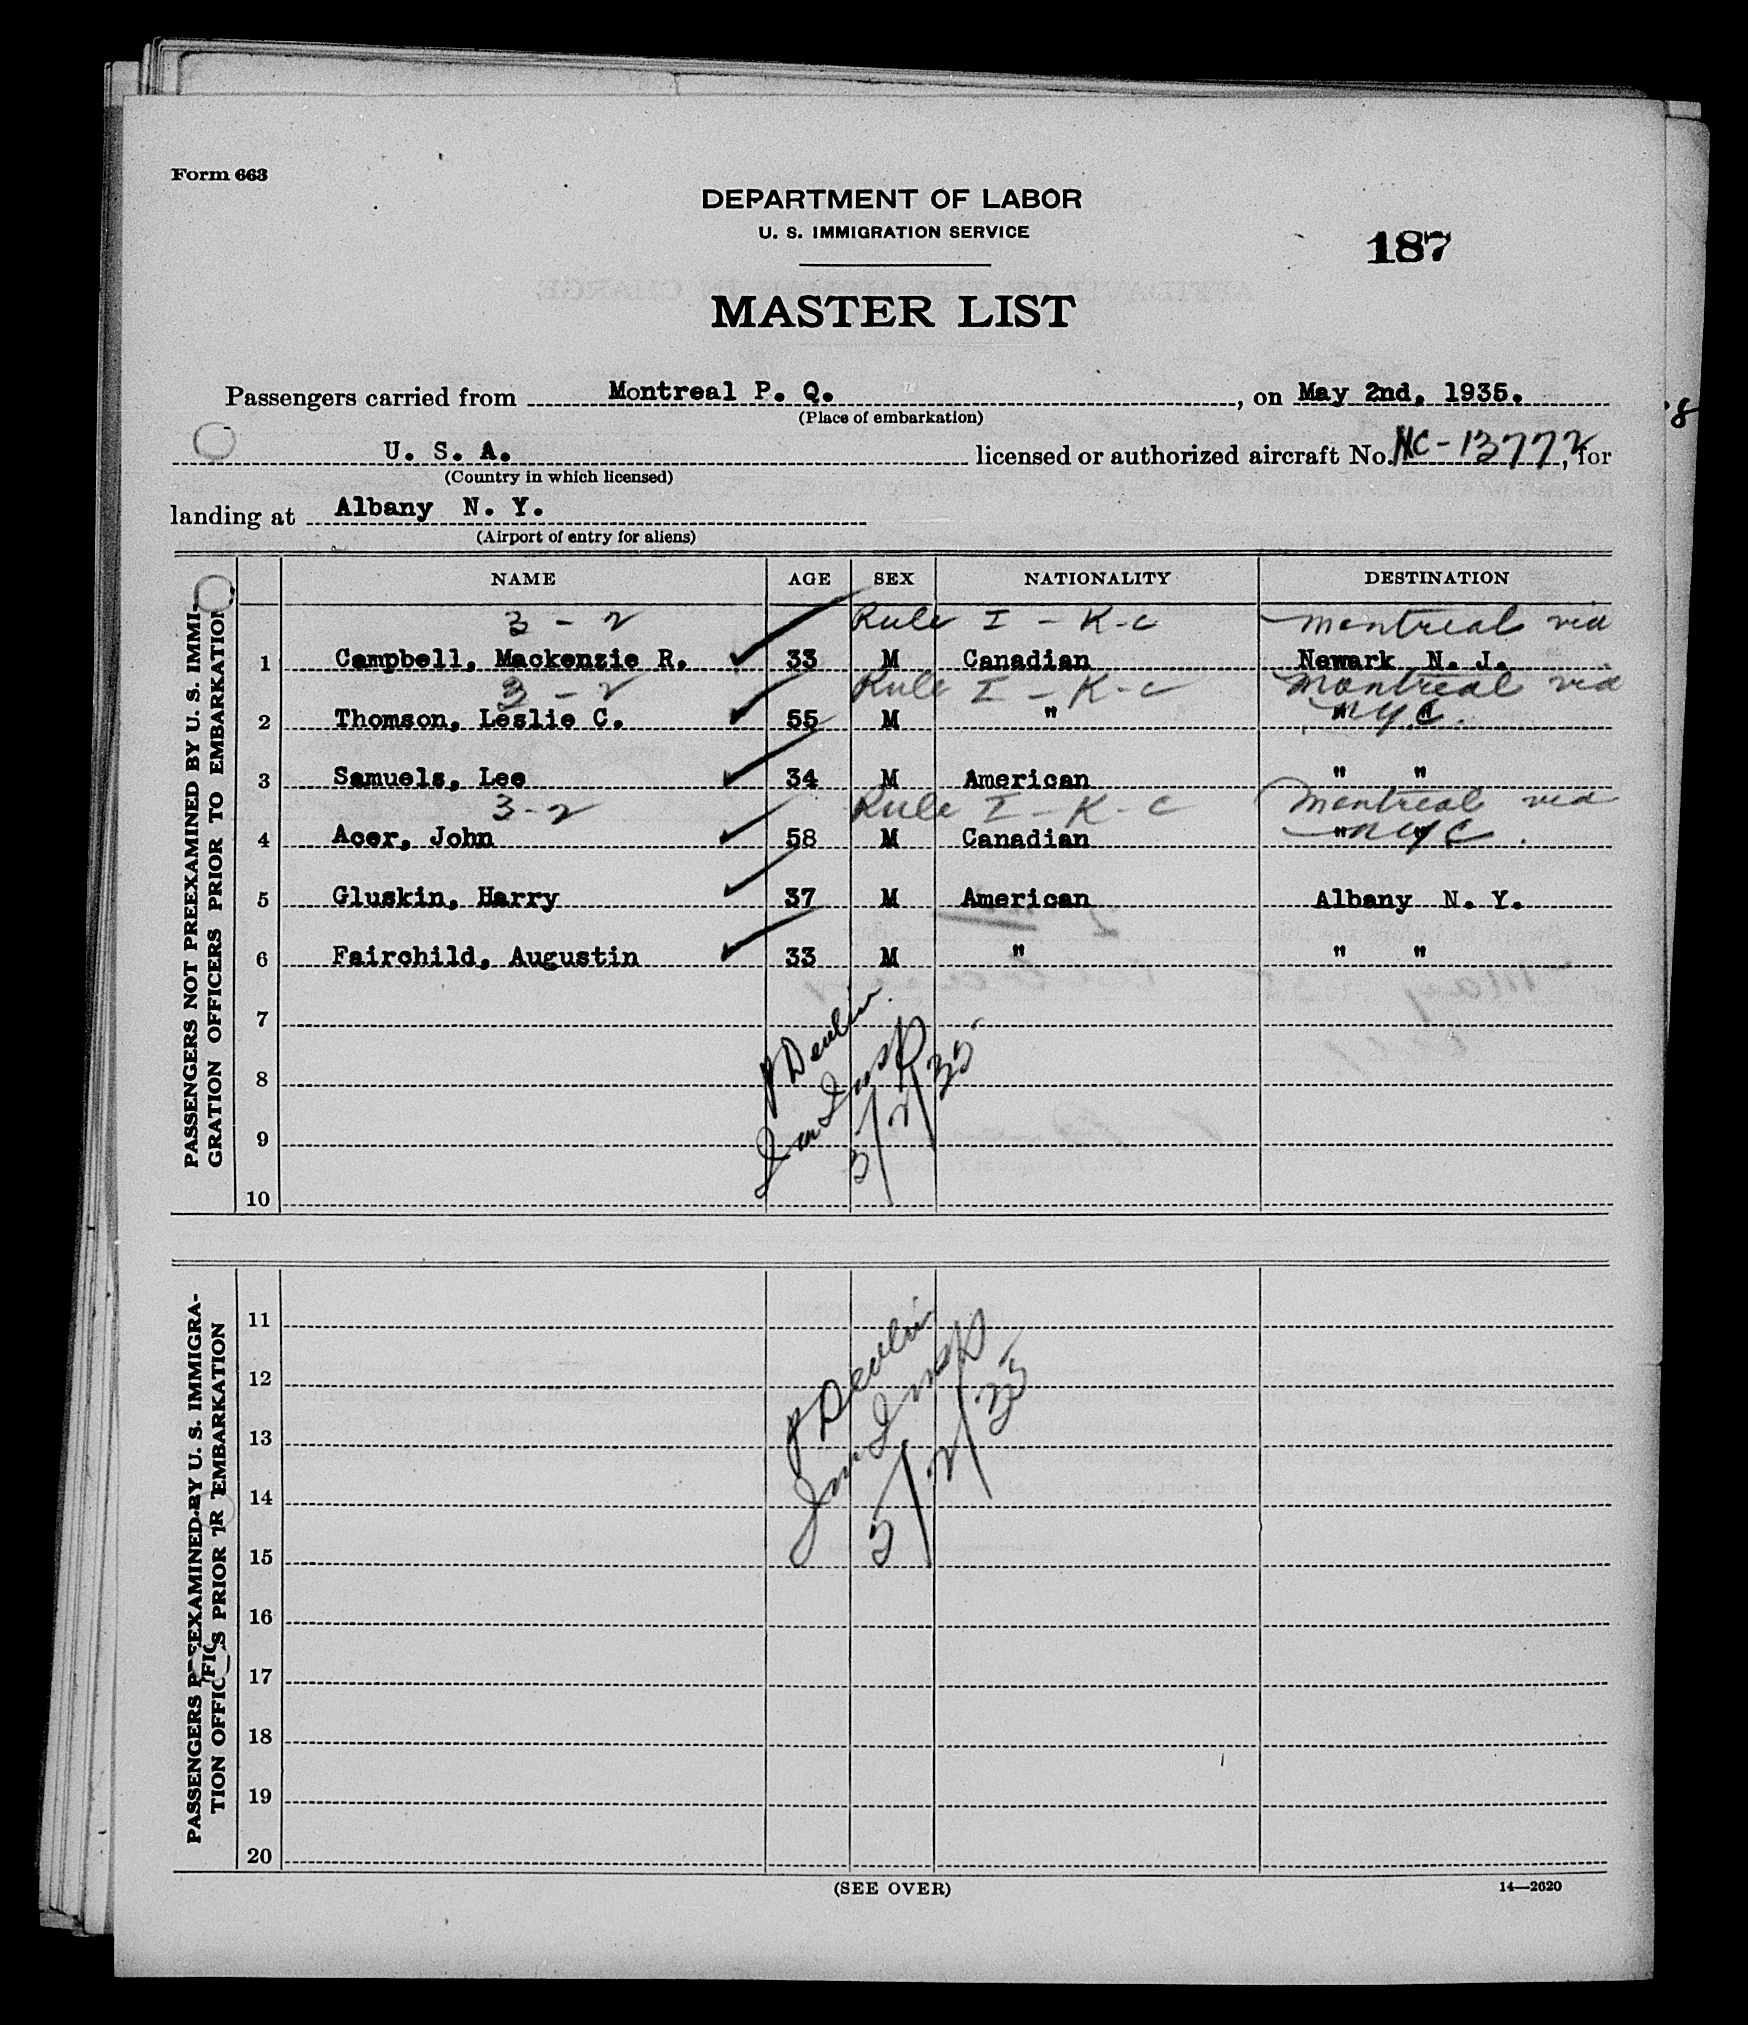 Form 663
DEPARTMENT OF LABOR
U. S. IMMIGRATION SERVICE
187
MASTER LIST
Passengers carried from Montreal P. Q. , on May 2nd, 1935.
(Place of embarkation)
8
U. S. A. licensed or authorized aircraft No. NC-13772, for
(Country in which licensed)
landing at Albany N. Y.
(Airport of entry for aliens)
PASSENGERS NOT PREEXAMINED BY U. S. IMMI-
GRATION OFFICERS PRIOR TO EMBARKATION
NAME AGE SEX NATIONALITY DESTINATION
3 - 2 Rule I - K-c Montreal via
1 Campbell, Mackenzie R. 33 M Canadian Newark N. J.
3 - 2 Rule I - K-c Montreal via
2 Thomson, Leslie C. 55 M " " " NYC.
3 Samuels, Lee 34 M American " "
3-2 Rule I - K-c Montreal via
4 Acer, John 58 M Canadian " " NYC.
5 Gluskin, Harry 37 M American Albany N. Y.
6 Fairchild, Augustin 33 M " " "
7
8
9
10
J Devlin
Imm Insp
5/2/35
PASSENGERS PREEXAMINED BY U. S. IMMIGRA-
TION OFFICERS PRIOR TO EMBARKATION
11
12
13
14
15
16
17
18
19
20
J Devlin
Imm Insp
5/2/35
(SEE OVER)
14—2620